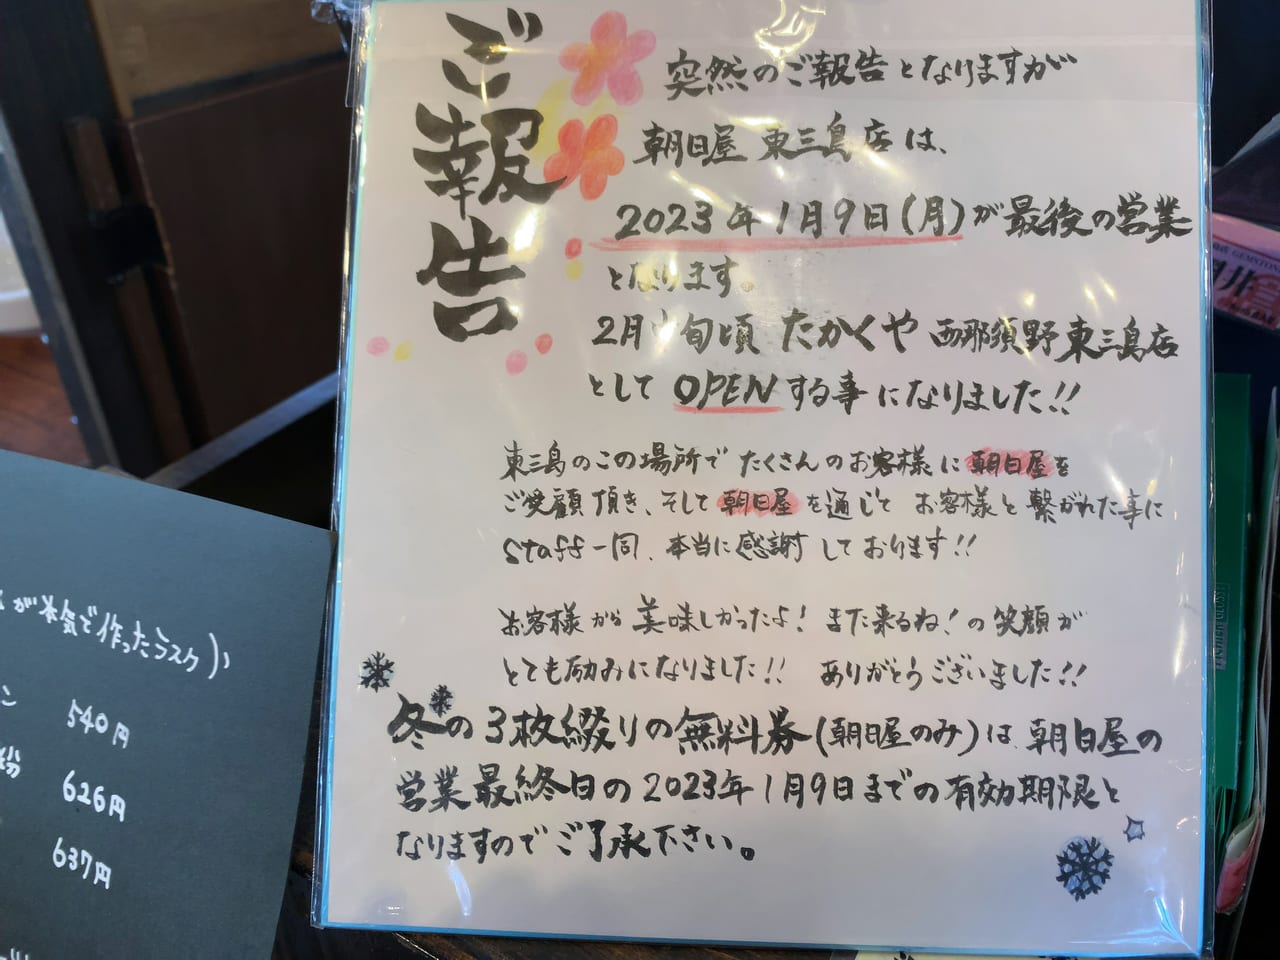 ご報告
突然のご報告となりますが
朝日屋 東三島店は、
2023年1月9日(月)が最後の営業
となります。
2月中旬頃 たかくや 西那須野東三島店
として OPENする事になりました!!
東三島のこの場所で たくさんのお客様に 朝日屋を
ご愛顧頂き、そして 朝日屋 を通じて お客様と 繋がれた事に
staff一同、本当に感謝 しております!!
お客様から 美味しかったよ! また来るね! の 笑顔が
とても励みになりました!! ありがとうございました!!
冬の3枚綴りの無料券(朝日屋のみ)は、朝日屋の
営業最終日の2023年1月9日までの有効期限と
なりますのでご了承下さい。
が本気で作ったラスク)
540円
626円
637円